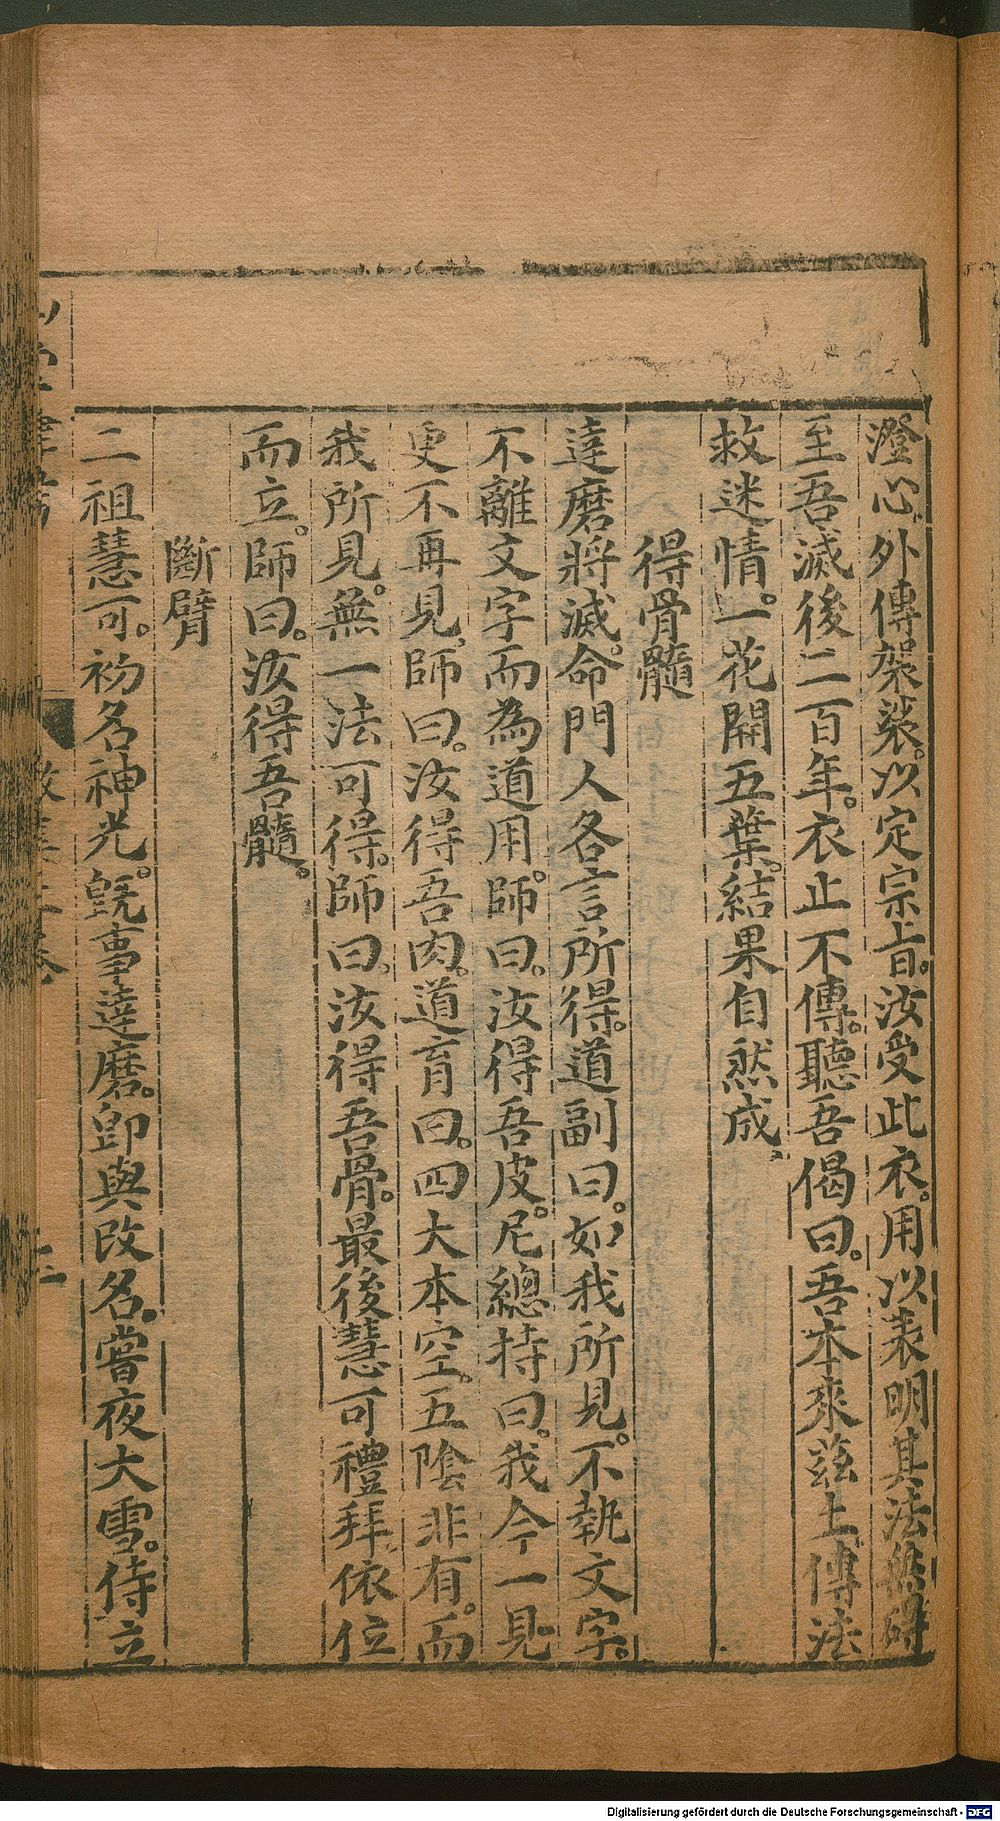 澄心。外傳袈裟。以定宗旨。汝受此衣。用以表明其法無礙
至吾滅後二百年。衣止不傳。聽吾偈曰。吾本來茲土。傳法
救迷情。一花開五葉。結果自然成、
得骨髓
達磨將滅。命門人各言所得。道副曰。如我所見。不執文字。
不離文字而為道用。師曰。汝得吾皮。尼總持曰。我今一見
更不再見、師曰。汝得吾肉。道育曰。四大本空。五陰非有。而
我所見。無一法可得。師曰。汝得吾骨。最後慧可禮拜。依位
而立。師曰。汝得吾髓。
斷臂
二祖慧可。初名神光。旣事達磨。卽與改名。嘗夜大雪。侍立
Digitalisierung gefördert durch die Deutsche Forschungsgemeinschaft - DFG